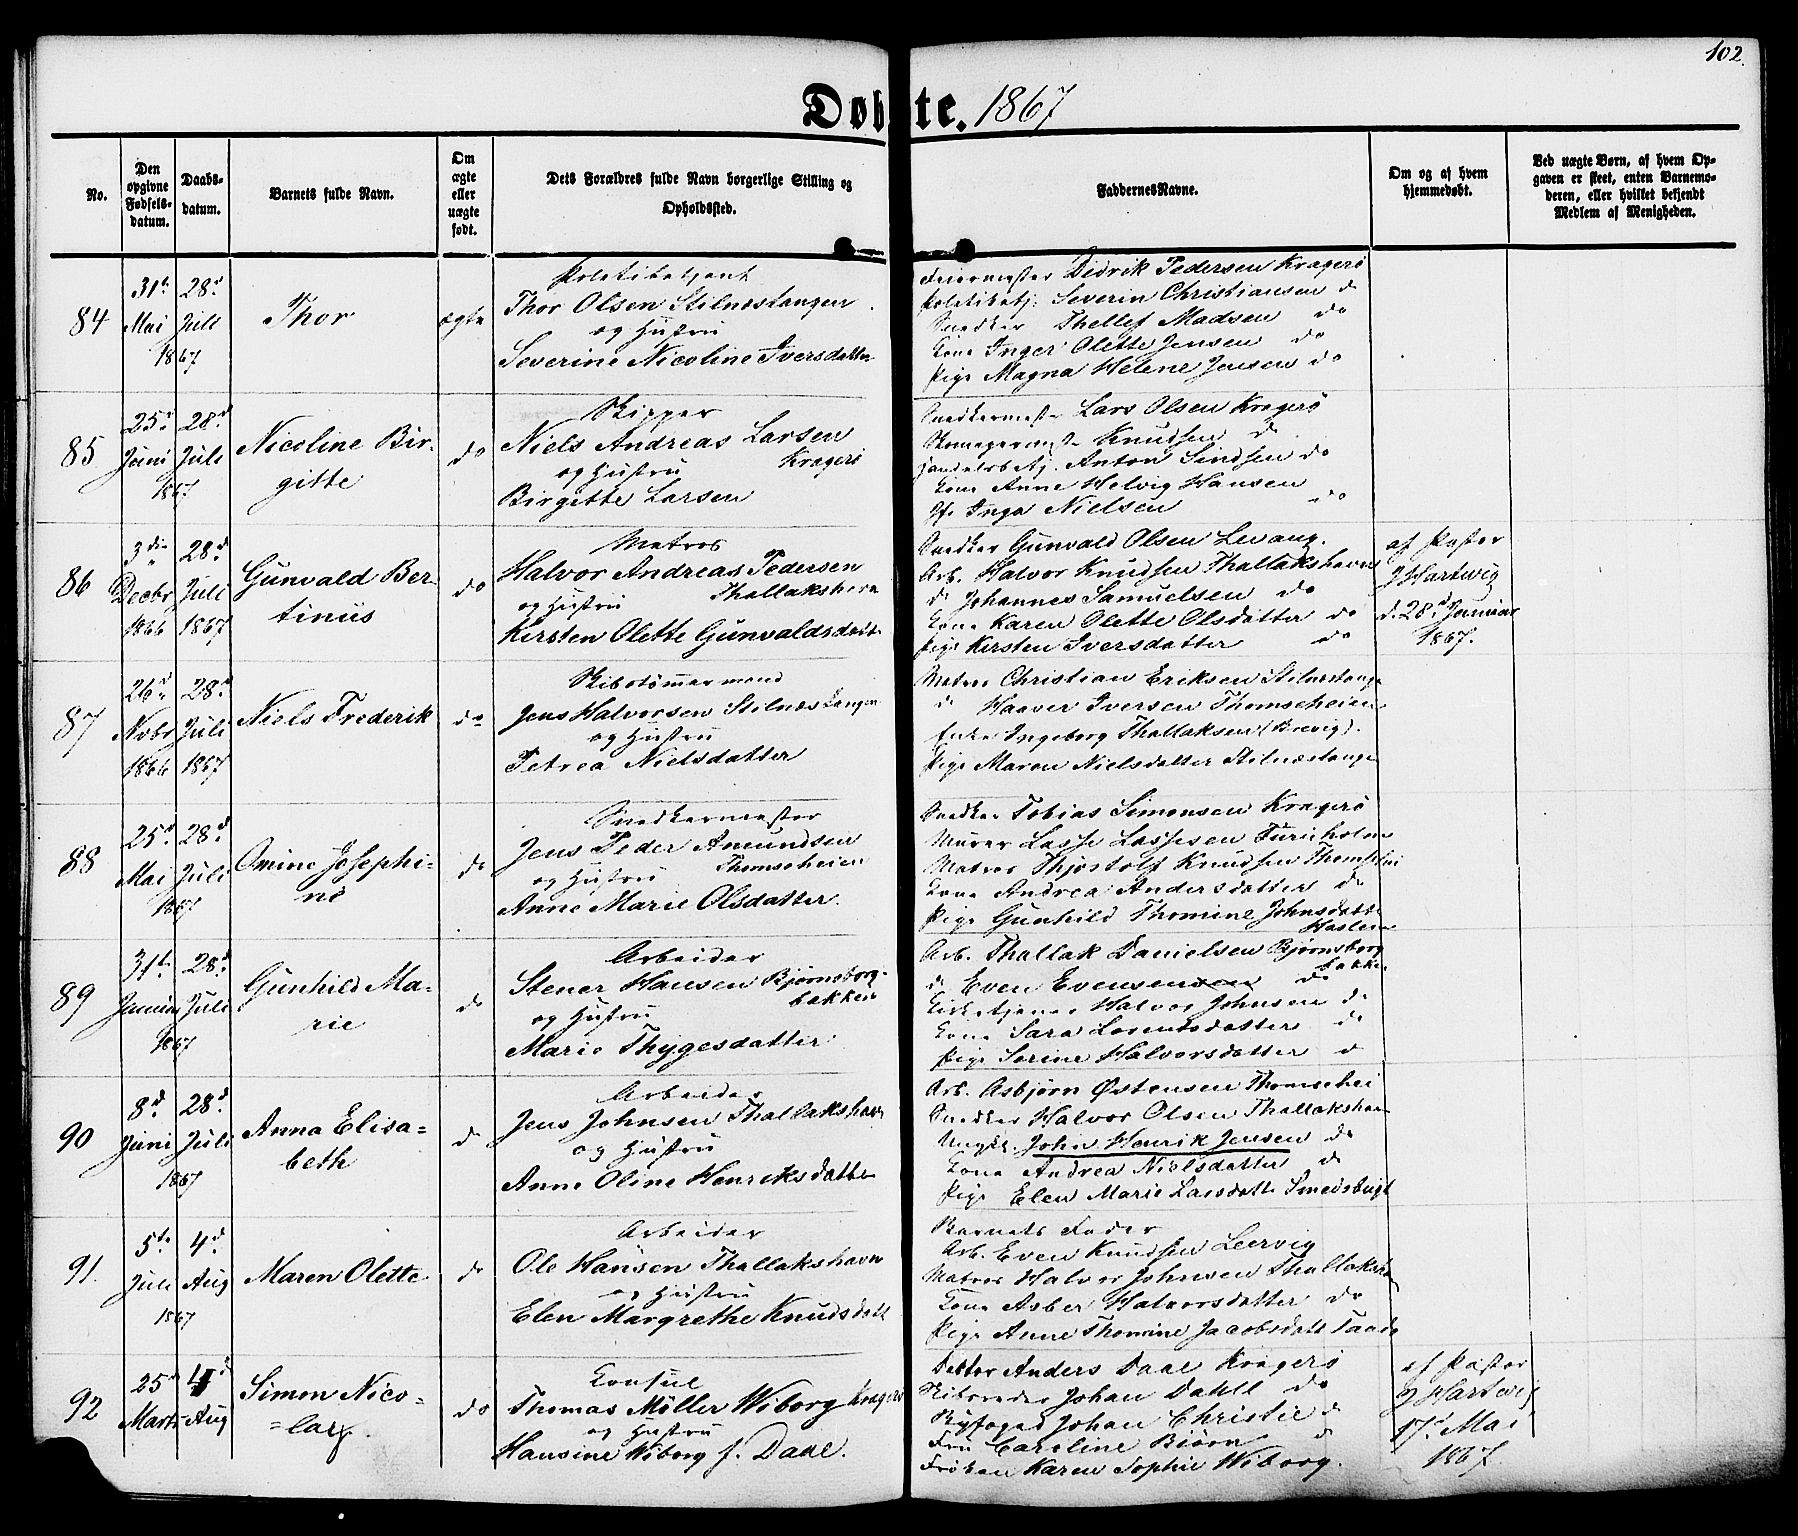 102.
Døbte. 1867
No.
Den opgivne Fødsels-datum.
Daabs-datum.
Barnets fulde Navn.
Om ægte eller uægte født.
Dets Forældres fulde Navn borgerlige Stilling og Opholdssted.
Faddernes Navne.
Om og af hvem hjemmedøbt.
Ved uægte Børn, af hvem Op-
gaven er skeet, enten Barnemo-
deren, eller hvilket bekjendt
Medlem af Menigheden.
84
31te Mai 1867
28d Juli
Thor
ægte
Politibetjent
Thor Olsen Stilnæstangen
og Hustru
Severine Nicoline Iversdatter
Feiermester Didrik Pedersen Kragerö
Politibetj. Severin Christiansen d
Snedker Thellef Madsen do
Kone Inger Olette Jensen do
Pige Magna Helene Jensen do
85
25d Juni 1867
28d Juli
Nicoline Bir-
gitte
do
Skipper
Niels Andreas Larsen
og Hustru Kragerö
Birgitte Larsen
Snedkermest. Lars Olsen Kragerö
Knudsen do
Anton Lindsen do
Kone Anne Helvig Hansen
Inga Nielsen do
86
3die Decbr 1866
28d Juli 1867
Gunvald Ber-
tinius
do
Matros
Halvor Andreas Pedersen
og Hustru Thallakshavn
Kirsten Olette Gunvaldsdatt
Snedker Gunvald Olsen Levang.
Arb. Halvor Knudsen Thallakshavn
d Johannes Samuelsen do
Kone Karen Olette Olsdatter do
Pige Kirsten Iversdatter do
af Pastor
Hartwig
d. 28d Januar
1867.
87
26d Novbr 1866
28d Juli 1867
Niels Frederik
do
Skibstømmermand
Jens Halvorsen Stilnæstangen
og Hustru
Petrea Nielsdatter
Matros Christian Eriksen Stilnæstange
d Haaver Iversen Thomseheien
Enke Ingeborg Thallaksen (Brevig).
Pige Maren Nielsdatter Stilnæstange
88
25d Mai 1867
28d Juli
Omine Josephi-
ne
do
Snedkermester
Jens Peder Amundsen
og Hustru Thomseheien
Anne Marie Olsdatter.
Snedker Tobias Simonsen Kragerö
Murer Lasse Lassesen Furuholm
Matros Thjostolf Knudsen Thomsehei
Kone Andrea Andersdatter do
Pige Gunhild Thomine Johnsdatt
Haslem
89
31te Januar 1867
28d Juli
Gunhild Ma-
rie
do
Arbeider
Stener Hansen Bjørnsborg-
og Hustru bakken
Marie Thygesdatter
Arb. Thallak Danielsen Bjørnsborg
bakke
d. Even Evensen do
Kirketjener Halvor Johnsen do
Kone Sara Lorentsdatter do
Pige Sorine Halvorsdatter d
90
8d Juni 1867
28d Juli
Anna Elisa-
beth
d
Arbeider
Jens Johnsen Thallakshavn
og Hustru
Anne Oline Henriksdatter
Arb. Asbjörn Østensen Thomsehei
Snedker Halvor Olsen Thallakshavn
Ungk. John Henrik Jensen do
Kone Andrea Nielsdatter d
Pige Elen Marie Larsdatt Smedsbugt
91.
5te Juli 1867
4d Aug
Maren Olette
do
Arbeider
Ole Hansen Thallakshavn
og Hustru
Elen Margrethe Knudsdatt
Barnets Fader
Arb. Even Knudsen Leervig
Matros Halvor Johnsen Thallaksha
Kone Asber Halvorsdatter do
Pige Anne Thomine Jacobsdatt Taade
92
25d Marts
4d Aug
Simon Nico-
-lay.
do
Consul
Thomas Möller Wiborg Kragerö
og Hustru
Hansine Wiborg f. Daae.
Doktor Anders Daae Kragerö
Skibsreder Johan Dahll do
Byfoged Johan Christie d
Fru Caroline Biörn d
Frøken Karen Sophie Wiborg.
af Pastor
Hartwig
17d Mai
1867.